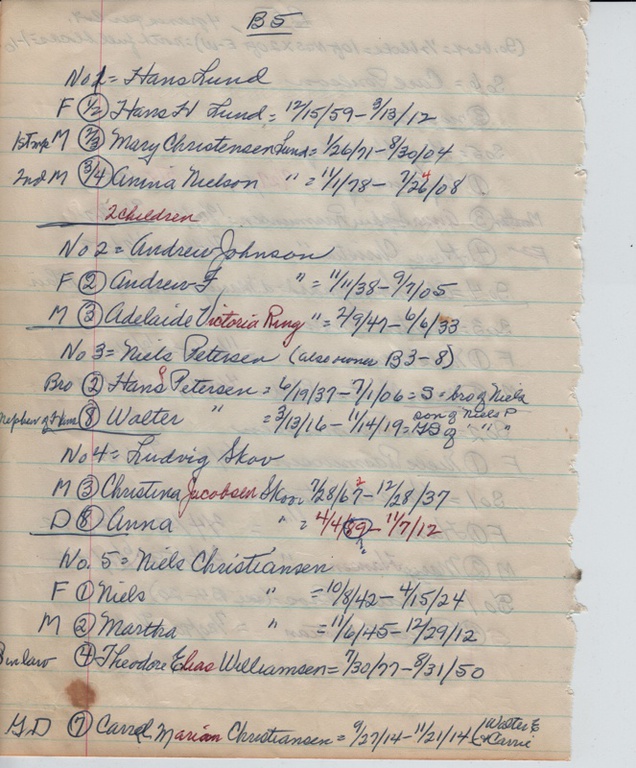 B5
No 1 = Hans Lund
F (1/2) Hans H Lund = 12/15/59 - 3/13/12
M (2/3) Mary Christensen Lund = 1/26/71 - 8/30/04
2nd M (3/4) Annna Nielson " = 11/1/78 - 7/26/08
2 children
No 2 = Andrew Johnson
F (2) Andrew F " = 11/11/38 - 9/7/05
M (3) Adelaide Victoria Ring " = 2/9/47 - 6/6/33
No 3 = Niels Petersen (also owner B3-8)
Bro (2) Hans Petersen = 6/19/37 - 7/1/06 = S = bro of Niels
nephew of Hans (8) Walter " = 3/13/16 - 11/14/19 = son of Niels P
GS of " "
No 4 = Ludvig Skov
M (3) Christina Jacobsen Skov 7/28/67 - 12/28/37
D (8) Anna " = 4/4/89 - 11/7/12
No. 5 = Niels Christiansen
F (1) Niels " = 10/8/42 - 4/15/24
M (2) Martha " = 11/6/45 - 12/29/12
inlaw (4) Theodore Elias Williamsen = 7/30/77 - 8/31/50
GD (7) Carrol Marian Christiansen = 9/27/14 - 11/21/14 (Walter E
+ Carrie